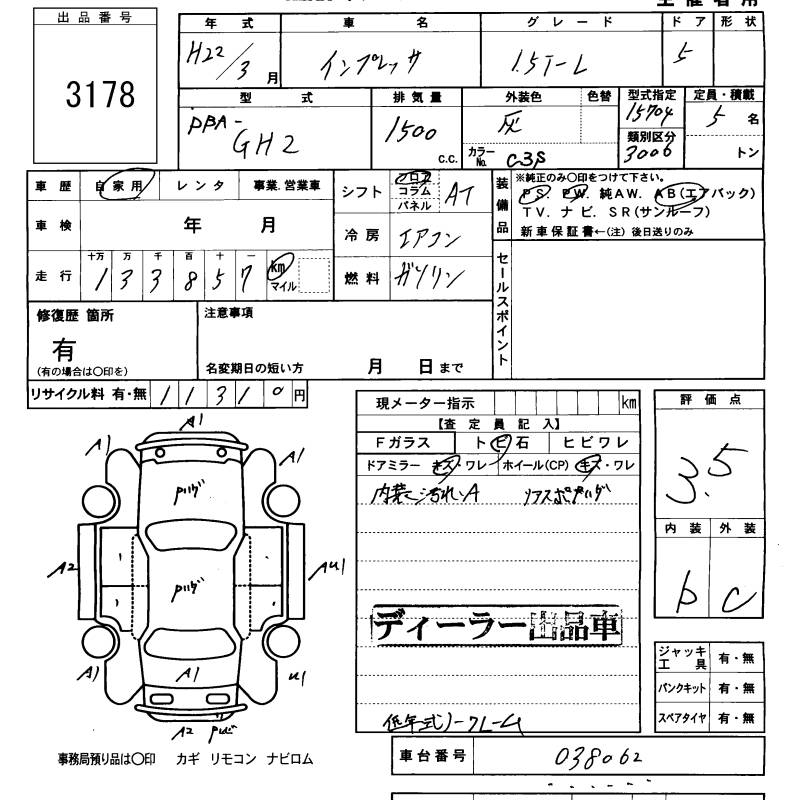 出品番号
3178
年 式 車 名 グレード ドア 形状
H22/3月 インプレッサ 1.5i-L 5
型 式 排気量 外装色 色替 型式指定 定員・積載
DBA-GH2 1500 c.c. 灰 15704 5 名
カラーNo. C3S 類別区分 3006 トン
車歴 自家用 レンタ 事業.営業車
シフト フロア コラム パネル AT
装備品
※純正のみ〇印をつけて下さい。
PS. PW. 純AW. AB(エアバック)
TV. ナビ. SR(サンルーフ)
新車保証書←(注)後日送りのみ
車検 年 月
冷房 エアコン
走行 十万 万 千 百 十 一
133857 km マイル
燃料 ガソリン
セールスポイント
修復歴 箇所
有
(有の場合は〇印を)
注意事項
名変期日の短い方 月 日まで
リサイクル料 有・無 11310円
現メーター指示 km
【査定員記入】
Fガラス トビ石 ヒビワレ
ドアミラー キズ・ワレ ホイール(CP) キズ・ワレ
内装ヨゴレA
ディーラー出品車
低年式ノークレーム
評価点
3.5
内装 外装
b C
ジャッキ工具 有・無
パンクキット 有・無
スペアタイヤ 有・無
A1
A1 A1
A2 AU1
A1 A1 U1
A2
事務局預り品は〇印 カギ リモコン ナビロム
車台番号 038062